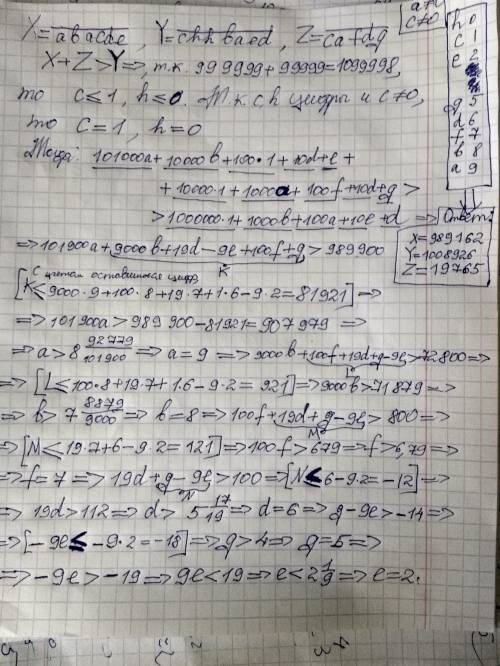 X=abacde, Y=chhbaed, Z=cafdg
a≠
c≠0
X+Z>Y⇒, т.к. 999999+99999=1099998,
то c≤1, h≤0. Т.к. c h цифры и c≠0,
то c=1, h=0
Тогда: 101000a+10000b+100·1+10d+e+
+10000·1+1000a+100f+10d+g>
>1000000·1+1000b+100a+10e+d ⇒
⇒101900a+9000b+19d-9e+100f+g>989900
K
С учетом оставшихся цифр
[K≤9000·9+100·8+19·7+1·6-9·2=81921]⇒
⇒101900a>989900-81921=907979⇒
⇒a>8 92779/101900⇒a=9⇒9000b+100f+19d+g-9e>72800⇒
L
⇒[L≤100·8+19·7+1·6-9·2=921]⇒9000b>71879⇒
⇒b>7 8879/9000⇒b=8⇒100f+19d+g-9e>800⇒
M
⇒[M≤19·7+6-9·2=121]⇒100f>679⇒f>6,79⇒
⇒f=7⇒19d+g-9e>100⇒[N≤6-9·2=-12]⇒
N
⇒19d>112⇒d>5 17/19⇒d=6⇒g-9e>-14⇒
⇒[-9e≤-9·2=-18]⇒g>4⇒g=5⇒
⇒-9e>-19⇒9e<19⇒e<2 1/9⇒e=2.
h 0
c 1
e 2
g 5
d 6
f 7
b 8
a 9
Ответ:
X=989162
Y=1008926
Z=19765